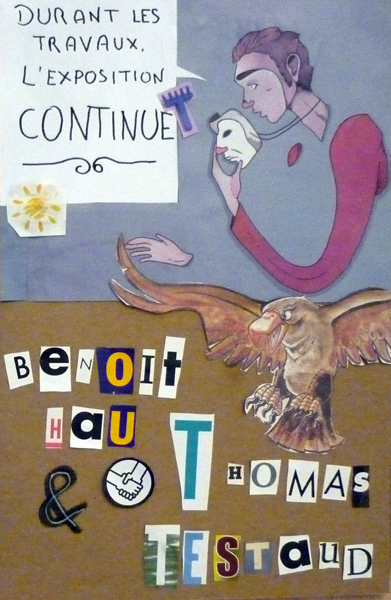 DURANT LES
TRAVAUX,
L'EXPOSITION
CONTINUET
BENOIt
HaU
& THOMAS
TESTaUD